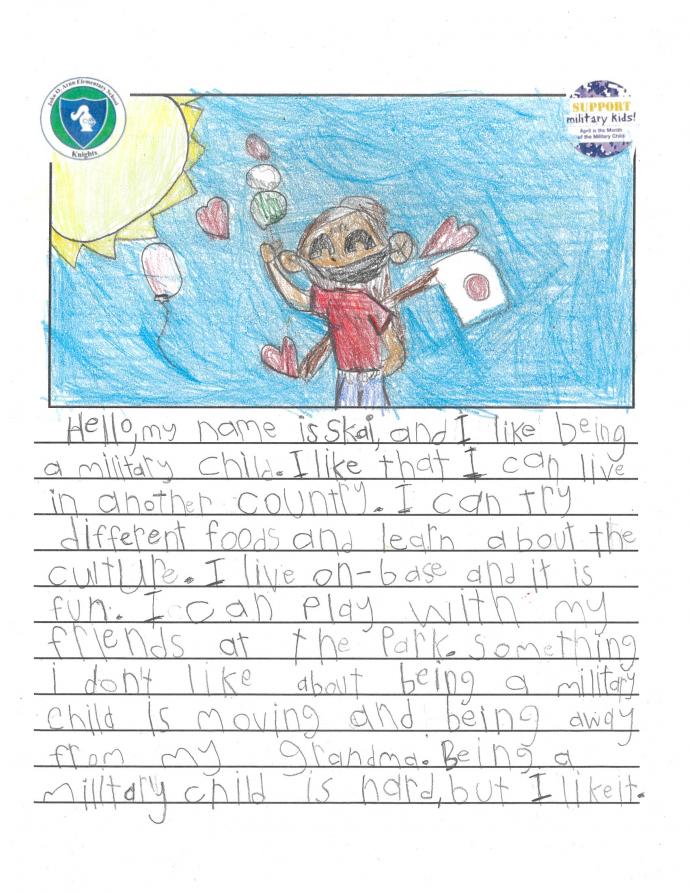 John O. Arnn Elementary School
Knights
SUPPORT
military kids!
April is the Month
of the Military Child
Hello, my name is Skai, and I like being
a military child. I like that I can live
in another country. I can try
different foods and learn about the
culture. I live on-base and it is
fun. I can play with my
friends at the Park. Something
i don't like about being a military
child is moving and being away
from my grandma. Being a
military child is hard, but I like it.